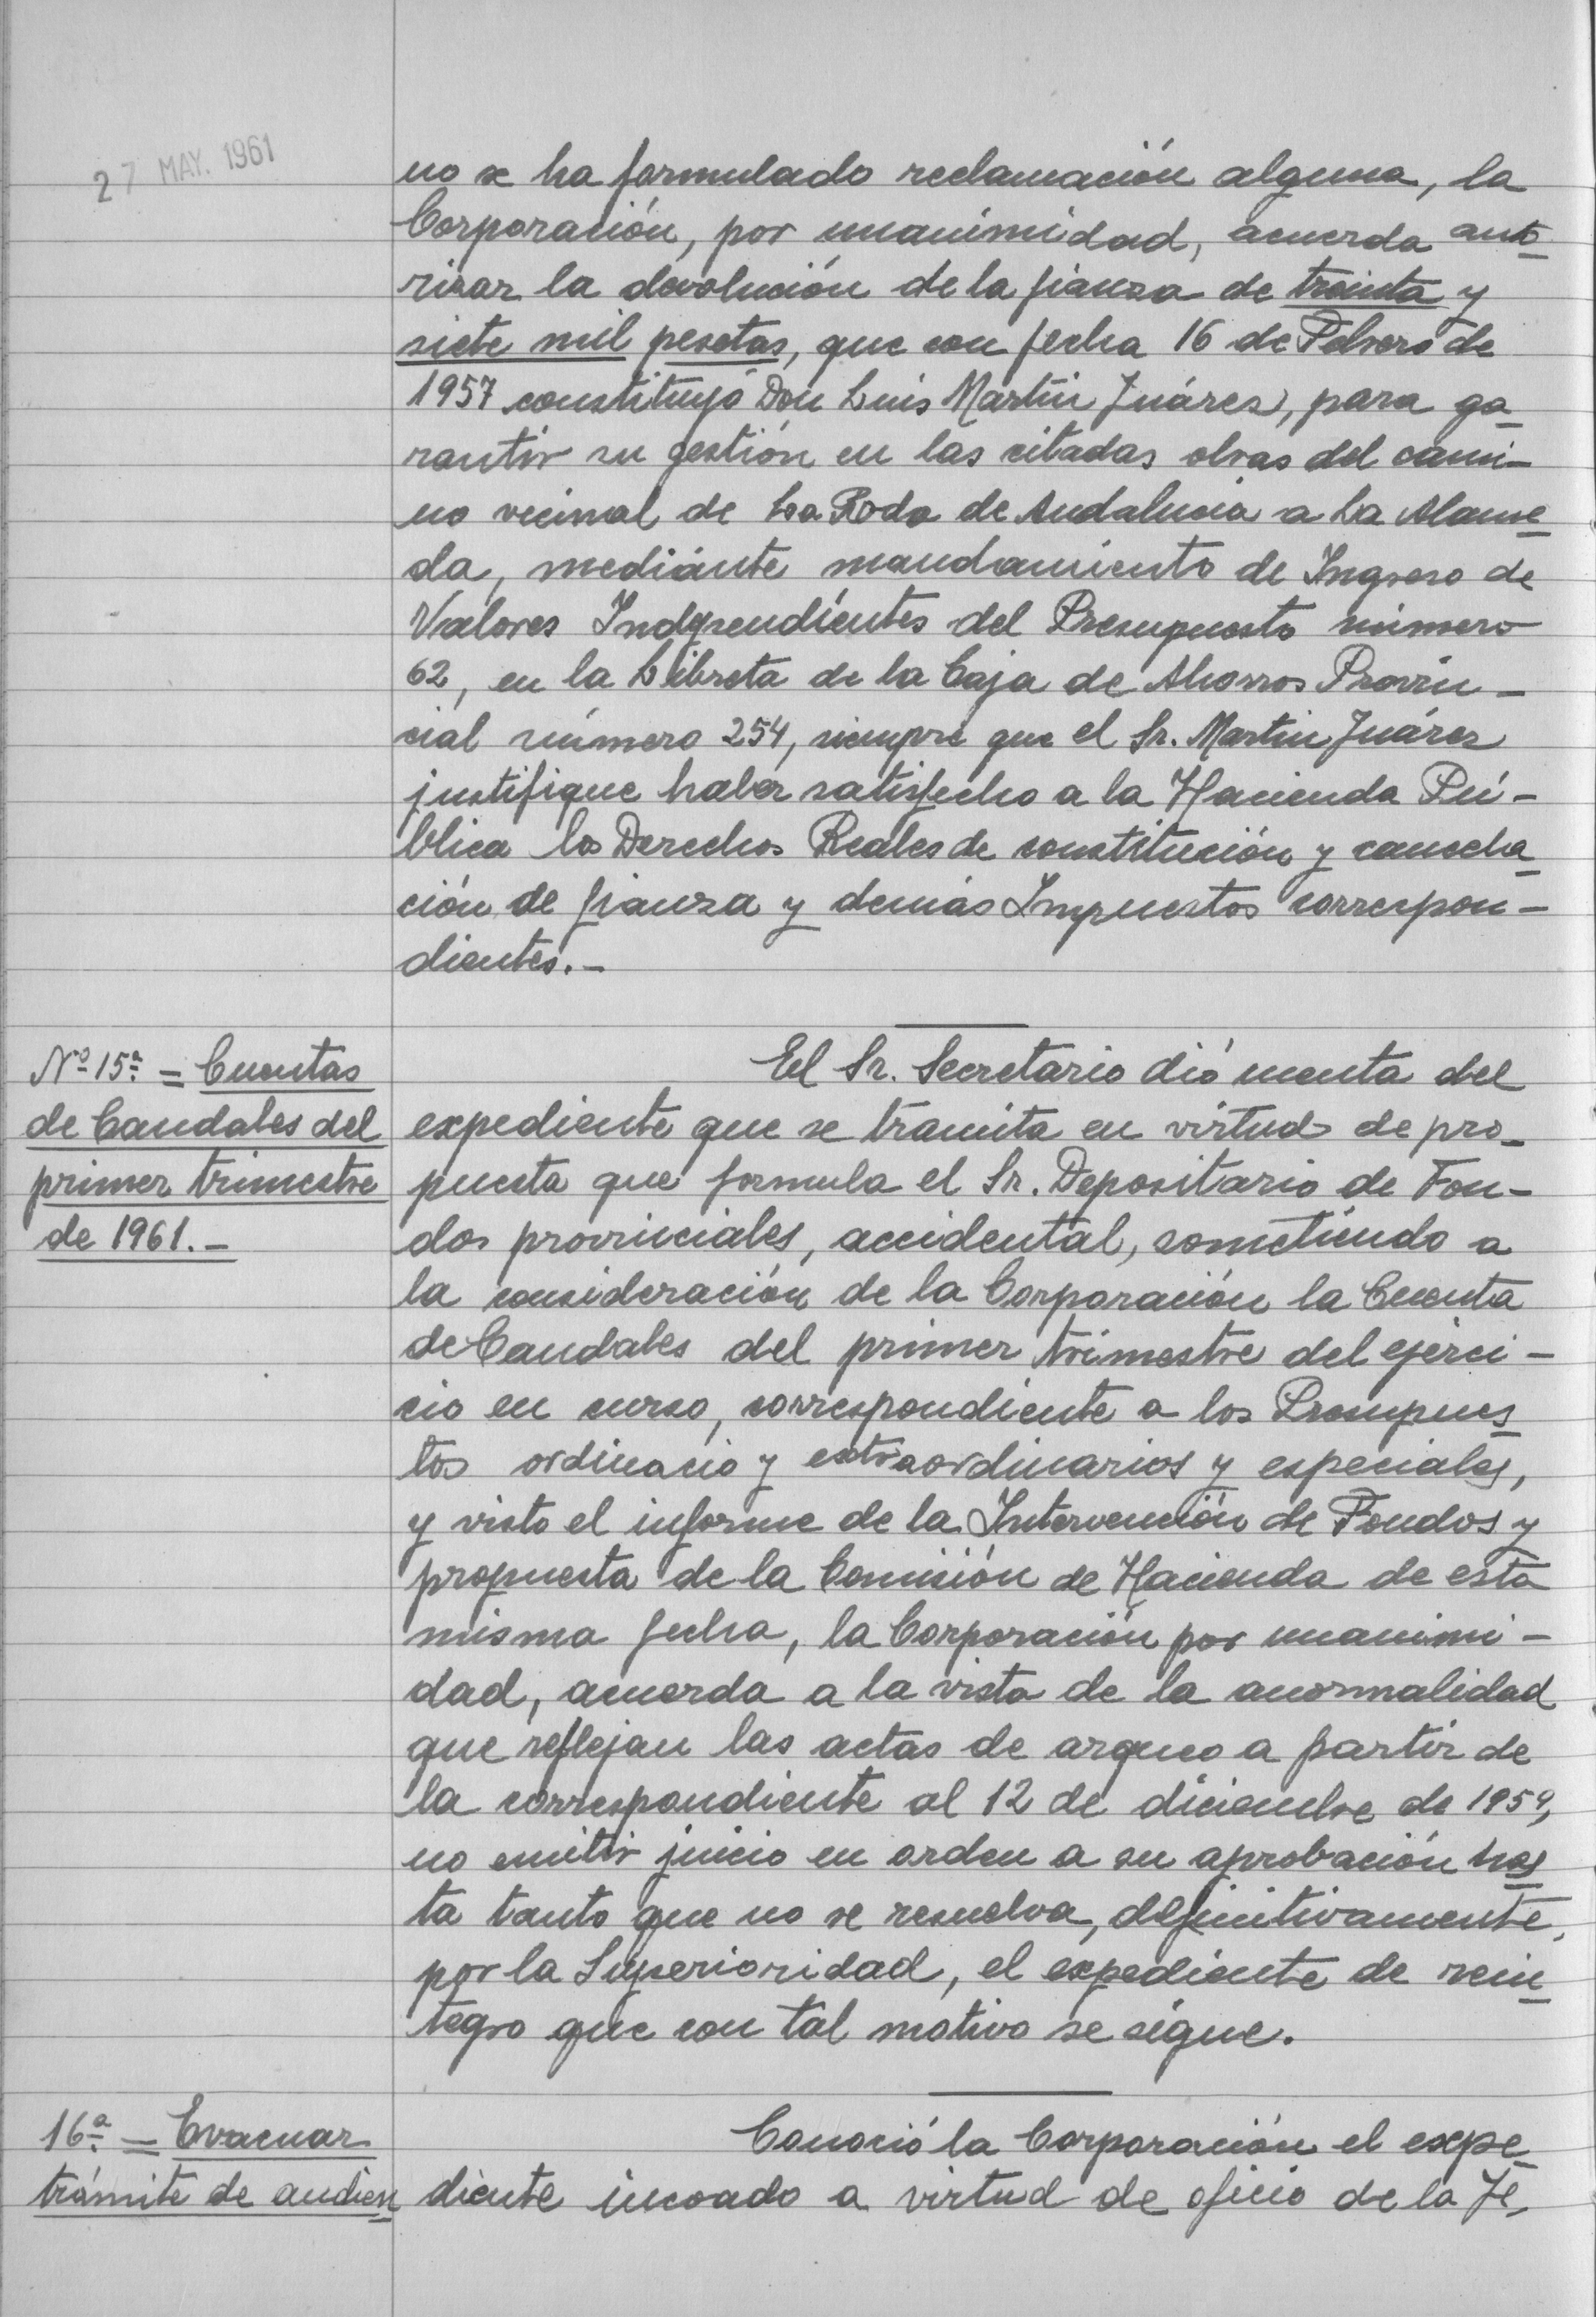 27 MAY. 1961
no se ha formulado reclamación alguna, la
Corporación, por unanimidad, acuerda auto
rizar la devolución de la fianza de treinta y
siete mil pesetas, que con fecha 16 de Febrero de
1957 constituyó Don Luis Martín Juárez, para ga
rantir su gestión en las citadas obras del cami-
no vecinal de La Roda de Andalucía a La Alame
da, mediánte mandamiento de Ingreso de
Valores Independíentes del Presupuesto número
62, en la Libreta de la Caja de Ahorros Provin-
cial número 254, siempre que el Sr. Martín Juárez
justifique haber satisfecho a la Hacienda Pú-
blica los Derechos Reales de constitución y cancela
ción de fianza y demás Impuestos correspon-
dientes.-
Nº 15ª = Cuentas
de Caudales del
primer trimestre
de 1961.-
El Sr. Secretario dió cuenta del
expediente que se tramita en virtud de pro-
puesta que formula el Sr. Depositario de Fon-
dos provinciales, accidental, sometiendo a
la consideración de la Corporación la Cuenta
de Caudales del primer trimestre del ejerci-
cio en curso, correspondiente a los Presupues
tos ordinario y extraordinarios y especiales,
y visto el informe de la Intervención de Fondos y
propuesta de la Comisión de Hacienda de esta
misma fecha, la Corporación por unanimi-
dad, acuerda a la vista de la anormalidad
que reflejan las actas de arqueo a partir de
la correspondiente al 12 de diciembre de 1959,
no emitir juicio en orden a su aprobación has
ta tanto que no se resuelva, definitivamente,
por la Superioridad, el expediente de rein
tegro que con tal motivo se sigue.
16ª = Evacuar
trámite de audien
Conoció la Corporación el expe
diente incoado a virtud de oficio de la Je,